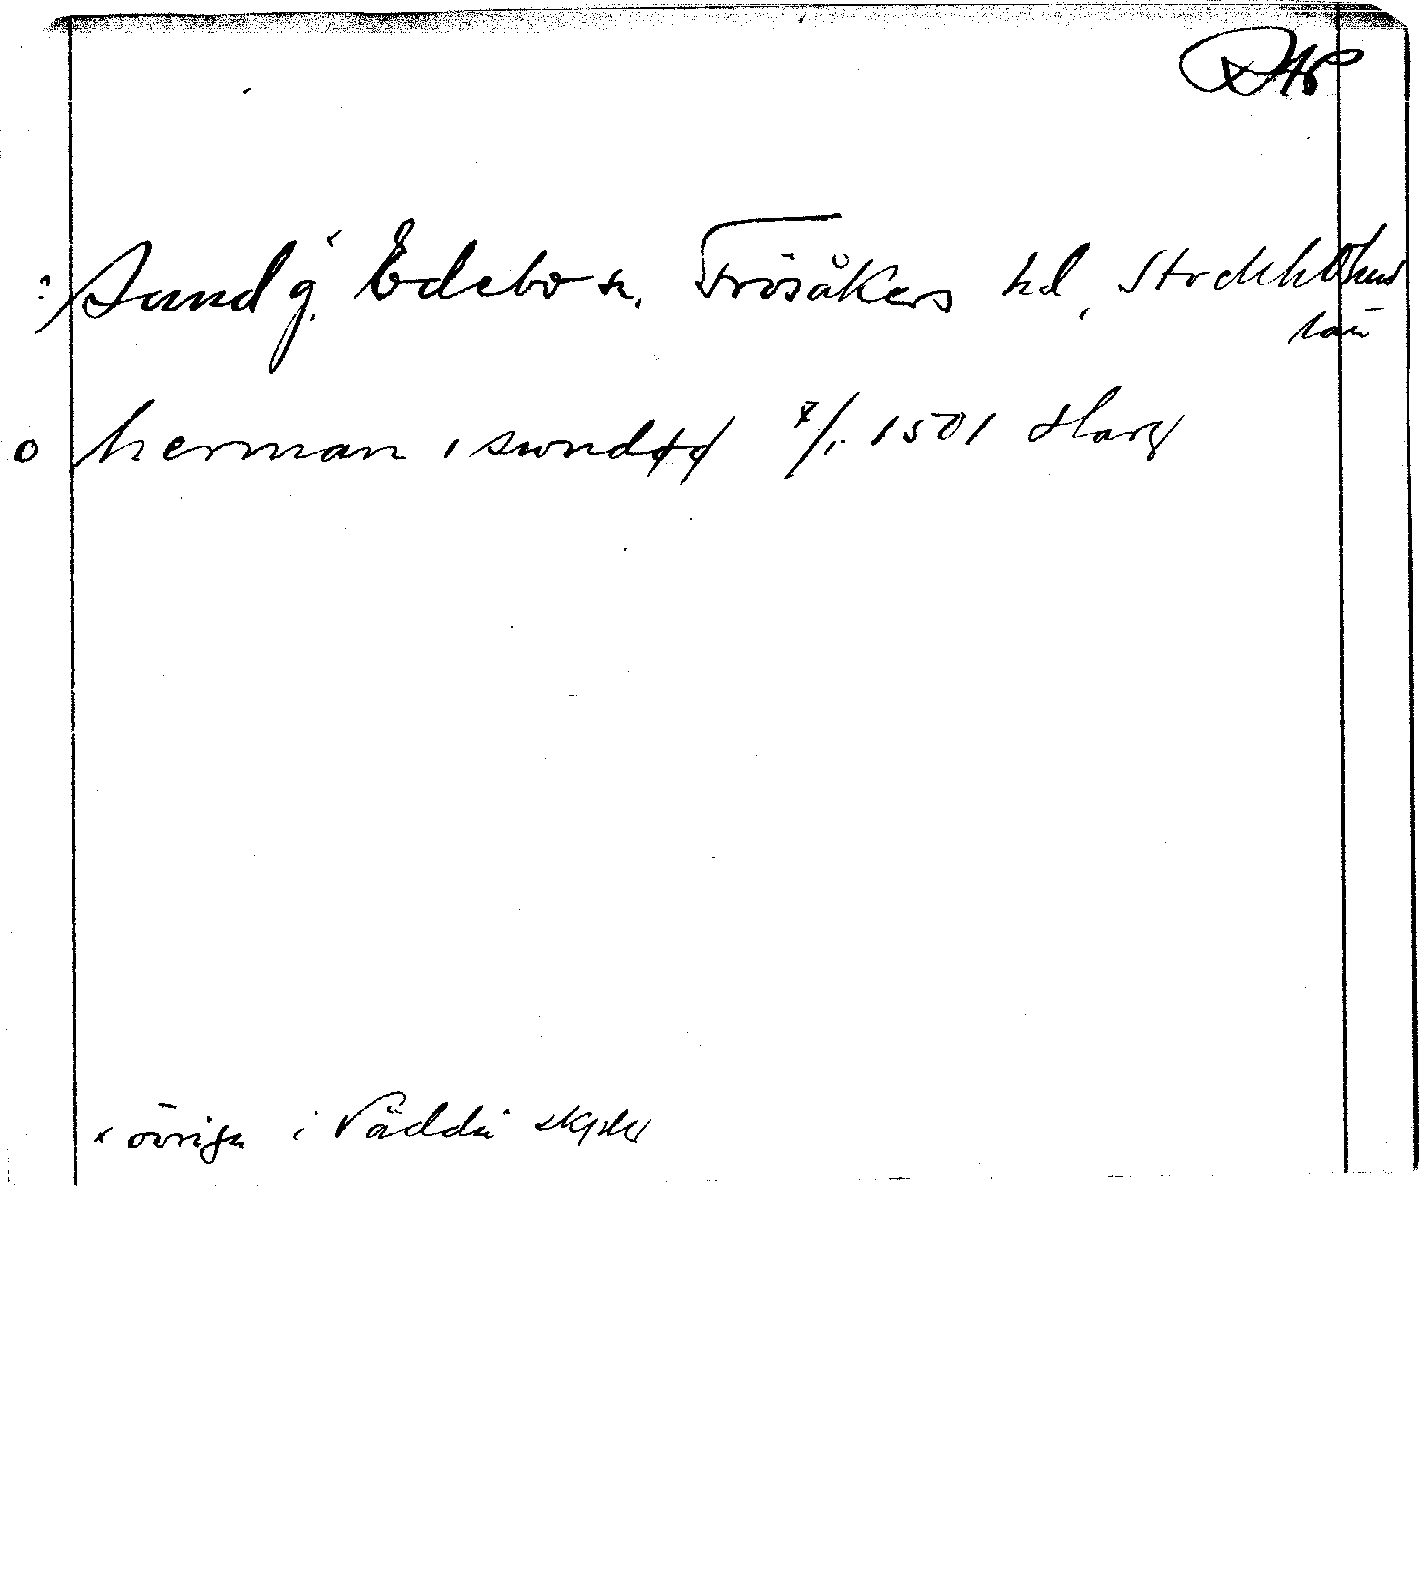 Sund g. ˣ Edebo sn. Frösåkers hd. Stockholms
län
herman i sund 7/1 1501 Harg
x övriga i Väddö skplg